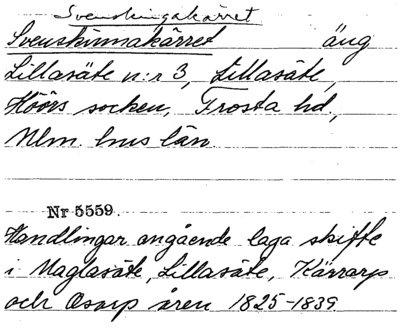 Svenskingakärret
Svenskinnakärret äng
Lillasäte n:r 3, Lillasäte,
Höörs socken, Frosta hd,
Mlm. hus län
Nr 5559.
Handlingar angående laga skifte
i Maglasäte, Lillasäte, Kärrarp
och Osarp åren 1825-1839.